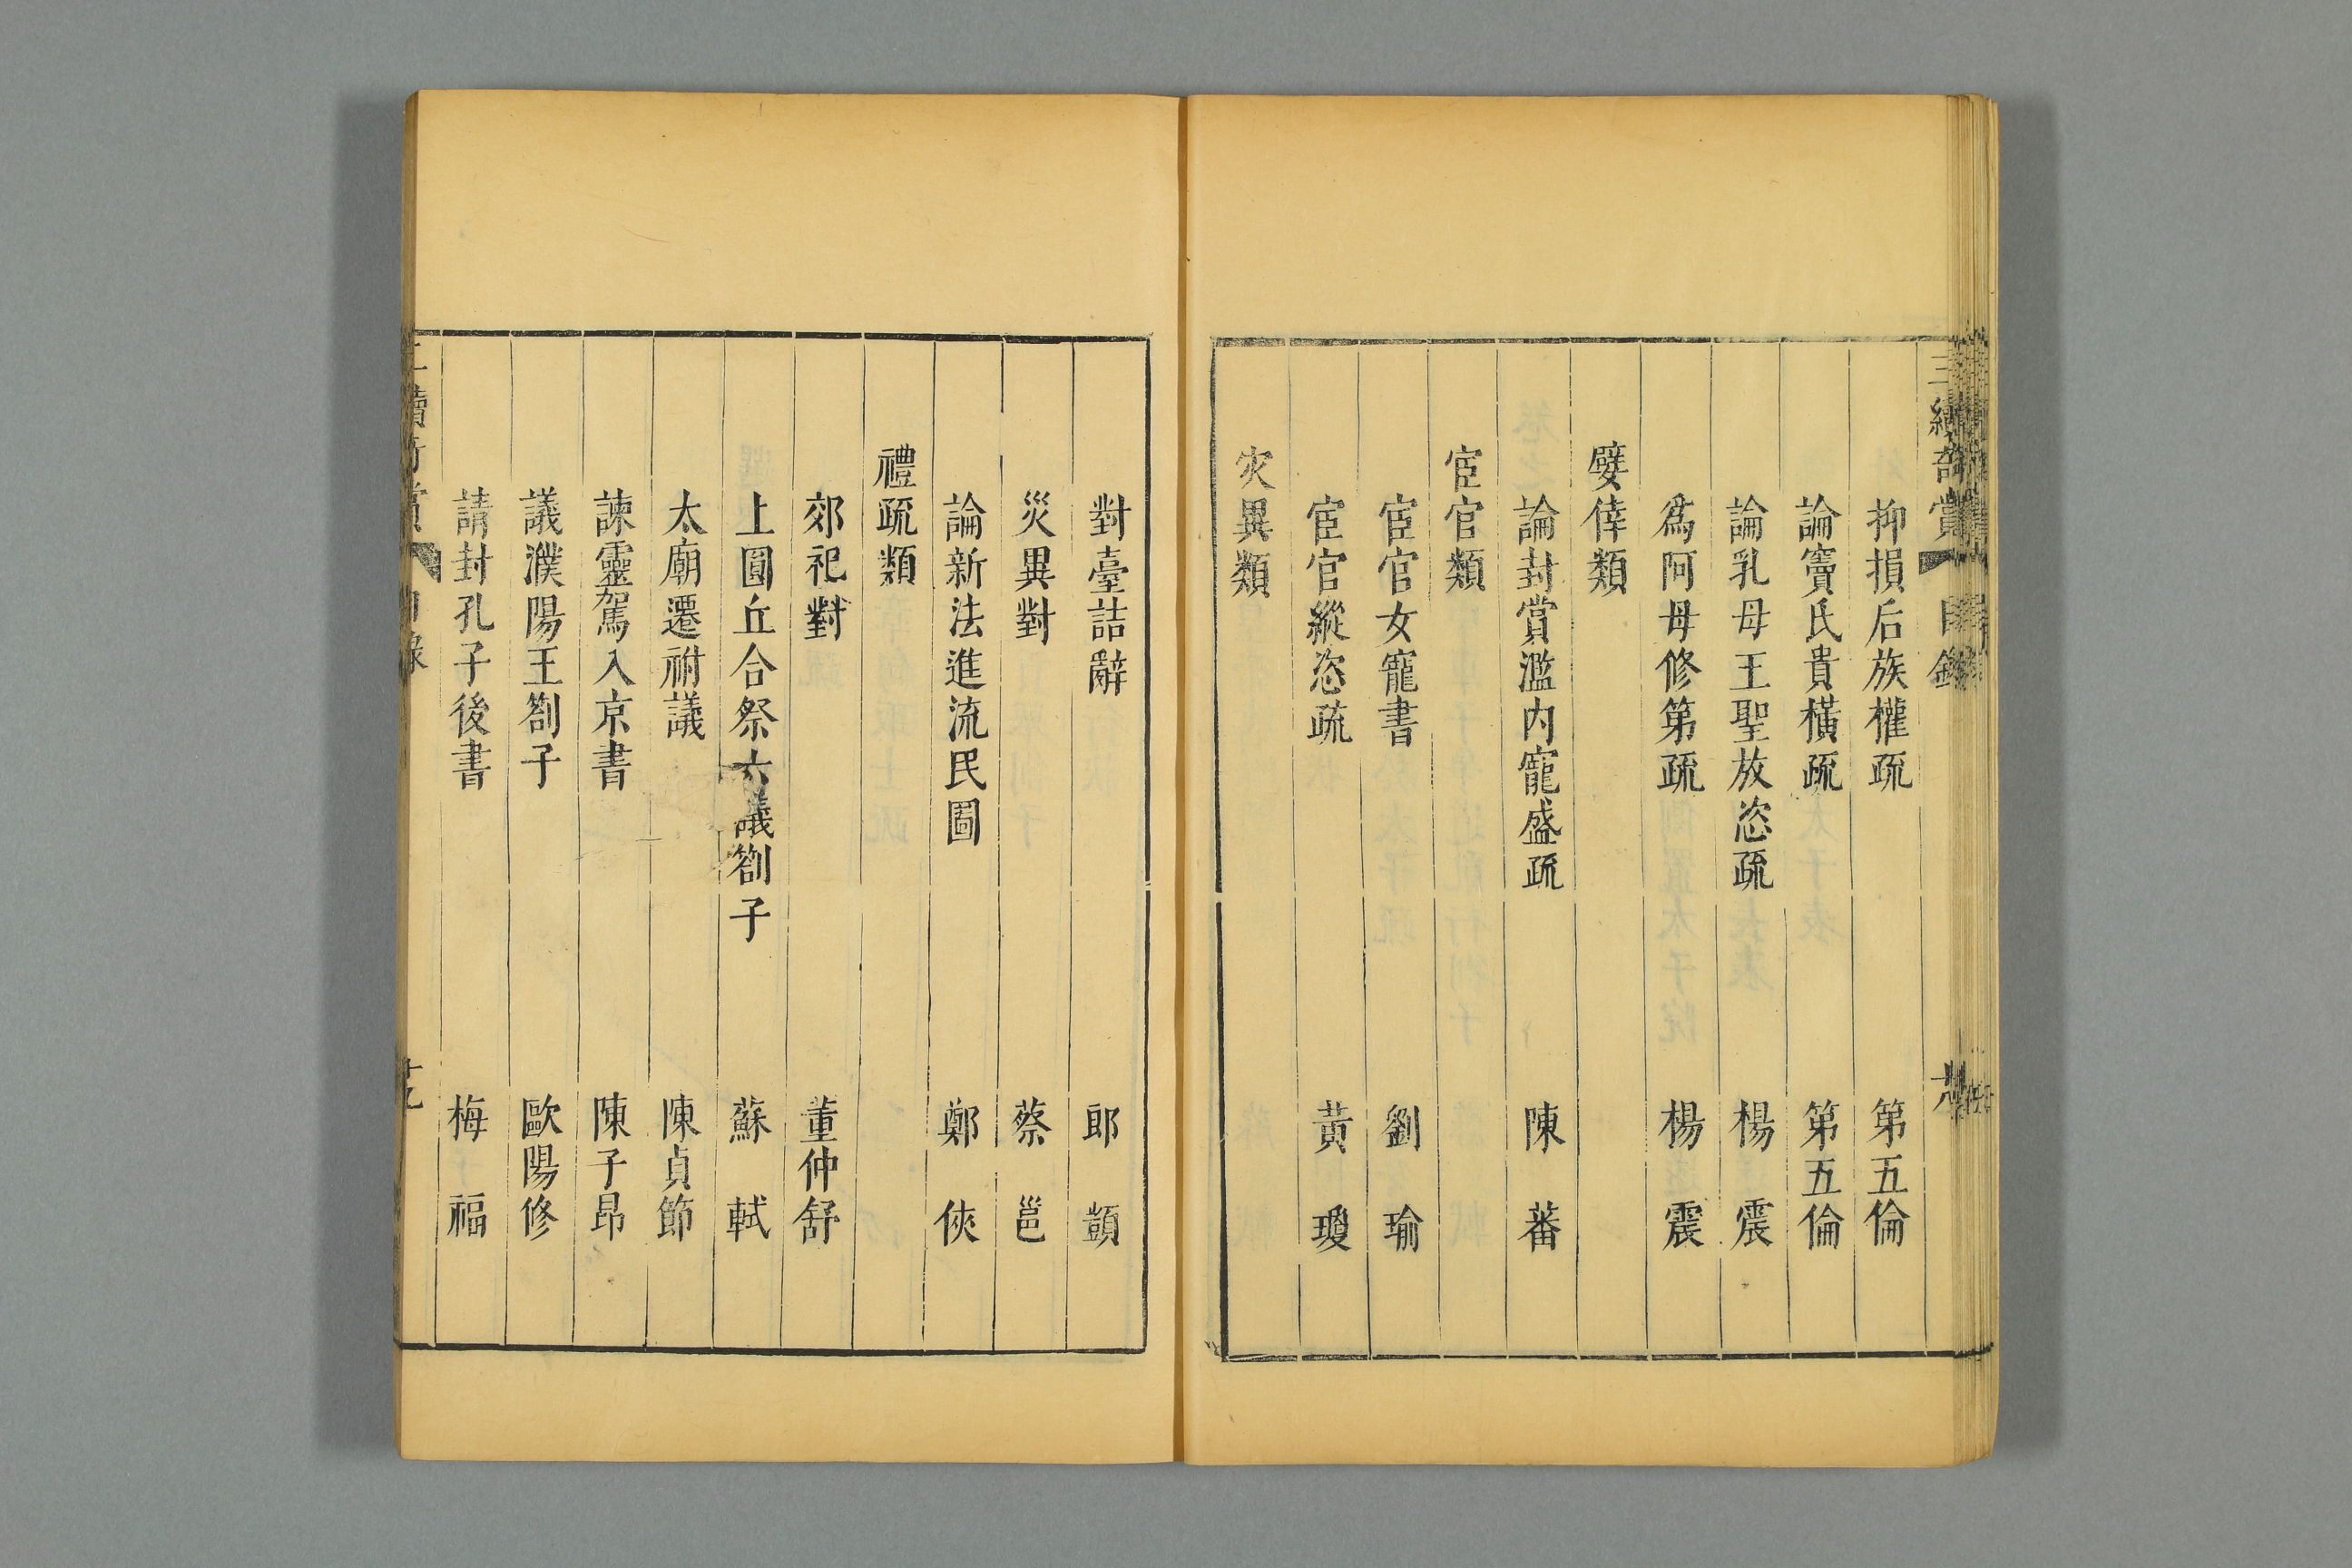 三續奇賞 目錄 十八
抑損后族權疏 第五倫
論竇氏貴橫疏 第五倫
論乳母王聖放恣疏 楊震
爲阿母修第疏 楊震
嬖倖類
論封賞濫内寵盛疏 陳蕃
宦官類
宦官女寵書 劉瑜
宦官縱恣疏 黃瓊
灾異類
對臺詰辭 郎顗
災異對 蔡邕
論新法進流民圖 鄭俠
禮疏類
郊祀對 董仲舒
上圓丘合祭六議劄子 蘇軾
太廟遷祔議 陳貞節
諫靈駕入京書 陳子昂
議濮陽王劄子 歐陽修
請封孔子後書 梅福
三續奇賞 目錄 十九